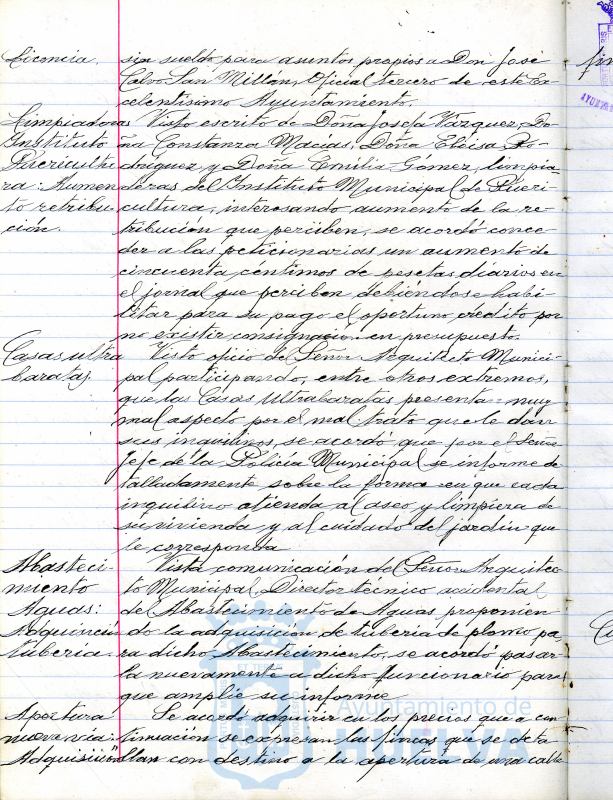 Licencia. sin sueldo para asuntos propios a Don José
Calvo San Millán, Oficial tercero de este Ex-
celentísimo Ayuntamiento.
Limpiadoras Visto escrito de Doña Josefa Vázquez, Do-
Instituto ña Constanza Macías, Doña Eloísa Ro-
Puericultu dríguez y Doña Emilia Gómez, limpia
ra: Aumen doras del Instituto Municipal de Pueri-
to retribu cultura, interesando aumento de la re-
ción. tribución que perciben, se acordó conce-
der a las peticionarias un aumento de
cincuenta céntimos de pesetas diarios en
el jornal que perciben, debiéndose habi-
litar para su pago el oportuno crédito por
no existir consignación en presupuesto.
Casas ultra Visto oficio del Señor Arquitecto Munici-
baratas. pal participando, entre otros extremos,
que las Casas Ultrabaratas presentan muy
mal aspecto por el mal trato que le dan
sus inquilinos, se acordó que por el Señor
Jefe de la Policía Municipal se informe de
talladamente sobre la forma en que cada
inquilino atienda al aseo y limpieza de
su vivienda y al cuidado del jardín que
le corresponda.
Abasteci- Vista comunicación del Señor Arquitec-
miento to Municipal Director técnico accidental
Aguas: del Abastecimiento de Aguas proponien
Adquisición do la adquisición de tubería de plomo pa-
tubería. ra dicho Abastecimiento, se acordó pasar
la nuevamente a dicho funcionario para
que amplíe su informe.
Apertura Se acordó adquirir en los precios que a con
nueva vía: tinuación se expresan las fincas que se deta
Adquisición llan con destino a la apertura de una calle
Ayuntamiento de
HUELVA